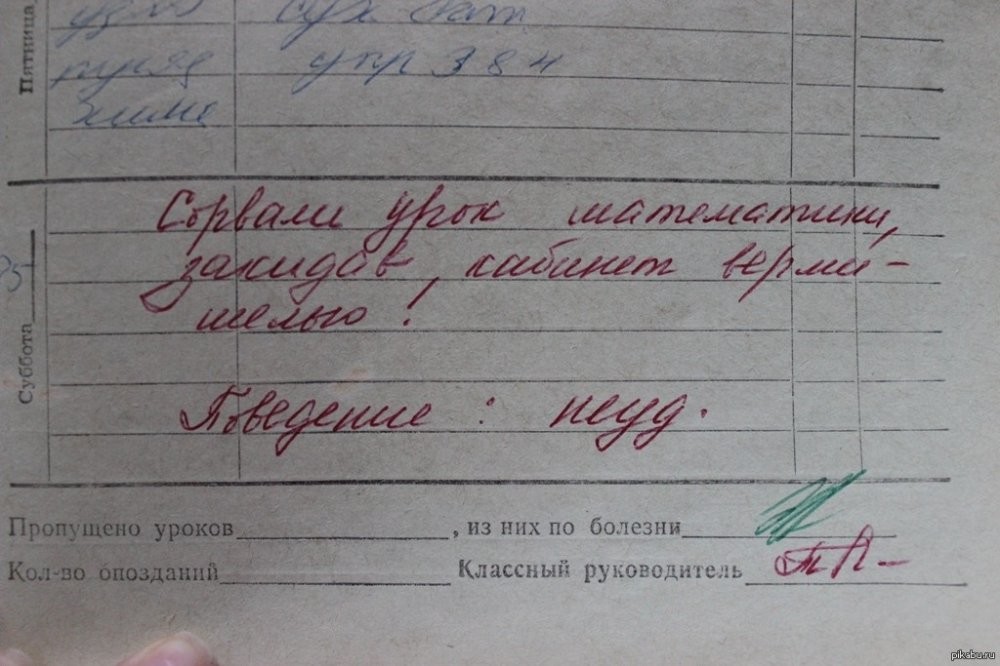 Пятница
упр 384
Сорвали урок математики,
закидав, кабинет верми-
шелью!
Суббота
Поведение: неуд.
Пропущено уроков , из них по болезни
Кол-во опозданий Классный руководитель
pikabu.ru